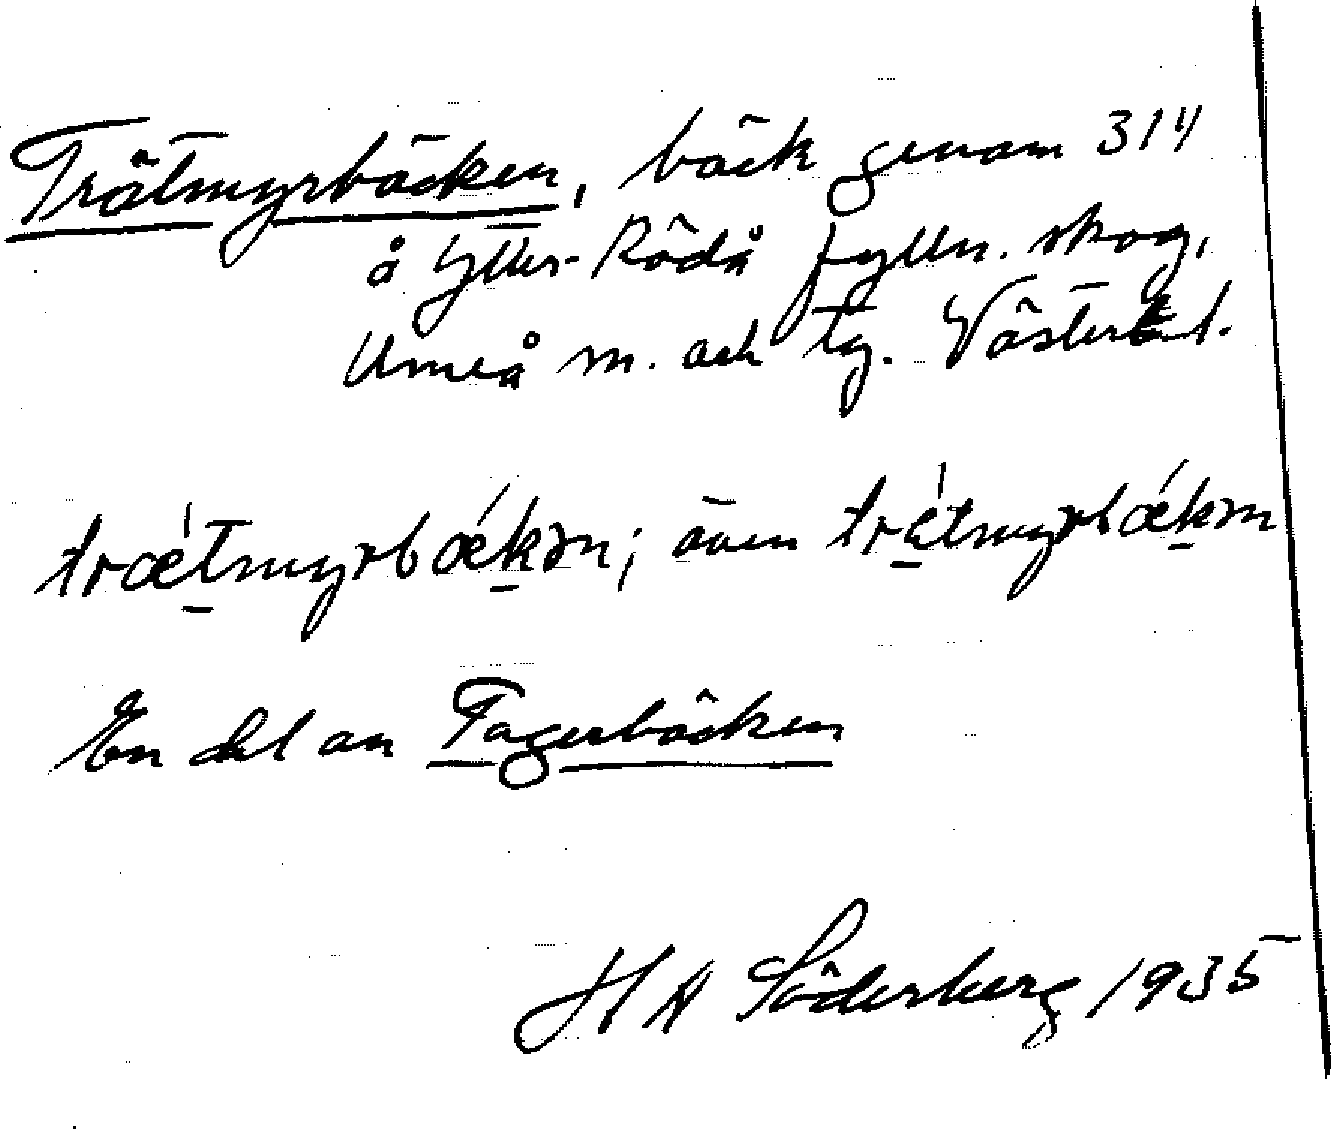 Trätmyrbäcken, bäck genom 314
å Ytter-Rödå fylln. skog,
Umeå m. och tg. Västerb. l.
træ̀tmyrbæ̀kən; även trètmyrbæ̀kən
En del av Fagerbäcken
H A Söderberg 1935